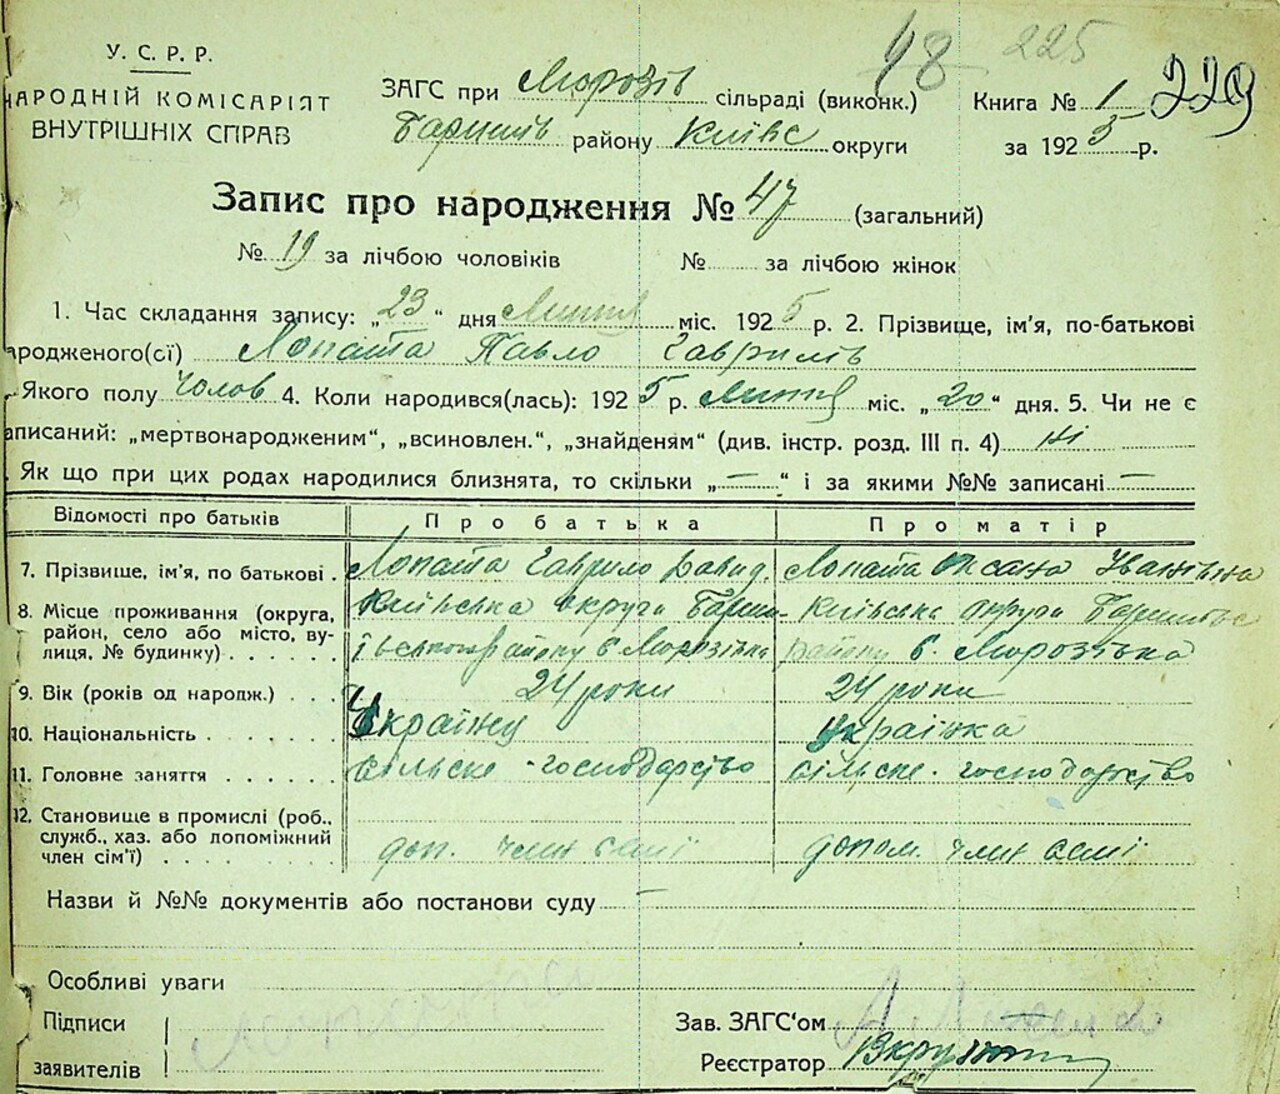 У. С. Р. Р.
НАРОДНІЙ КОМІСАРІЯТ
ВНУТРІШНІХ СПРАВ
48 225
ЗАГС при Морозів сільраді (виконк.) Книга № 1 229
Баришів району Київс округи за 1925 р.
Запис про народження № 47 (загальний)
№ 19 за лічбою чоловіків № за лічбою жінок
1. Час складання запису: „23“ дня Липня міс. 1925 р. 2. Прізвище, ім'я, по-батькові
ародженого(сі) Лопата Павло Гаврилів
Якого полу Чолов 4. Коли народився(лась): 1925 р. Липня міс. „20“ дня. 5. Чи не є
аписаний: „мертвонародженим“, „всиновлен.“, „знайденям“ (див. інстр. розд. III п. 4) ні
Як що при цих родах народилися близнята, то скільки „—“ і за якими №№ записані —
Відомості про батьків Про батька Про матір
7. Прізвище, ім'я, по батькові . Лопата Гаврило Давид. Лопата Оксана Іванівна
8. Місце проживання (округа, район, село або місто, вулиця, № будинку) . . . . . .
Київська округа Бариш-
ївського району с. Морозівка
Київська округа Баришівс
району с. Морозівка
9. Вік (років од народж.) . . . 24 роки 24 роки
10. Національність . . . . . . Українец українка
11. Головне заняття . . . . . . сільске-господарство сільске-господарство
12. Становище в промислі (роб., служб., хаз. або допоміжний член сім'ї) . . . . . . . .
доп. член семї допом. член семї
Назви й №№ документів або постанови суду —
Особливі уваги
Підписи
заявителів
Лопата
Зав. ЗАГС'ом
Реєстратор